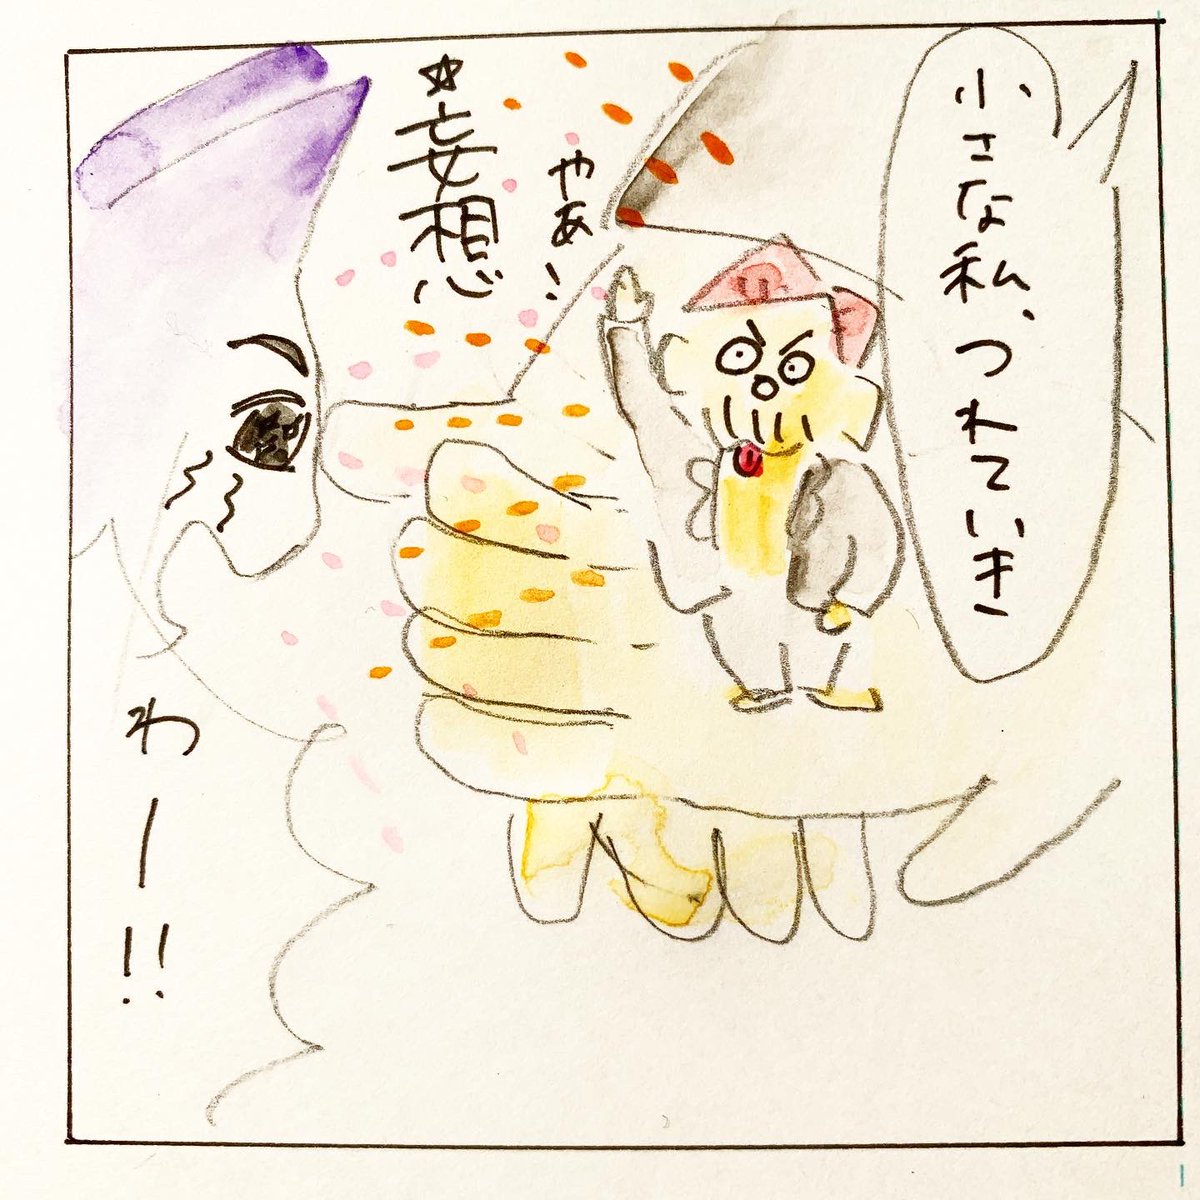 小さな私、つれていき
やぁ!
☆妄想
わー!!